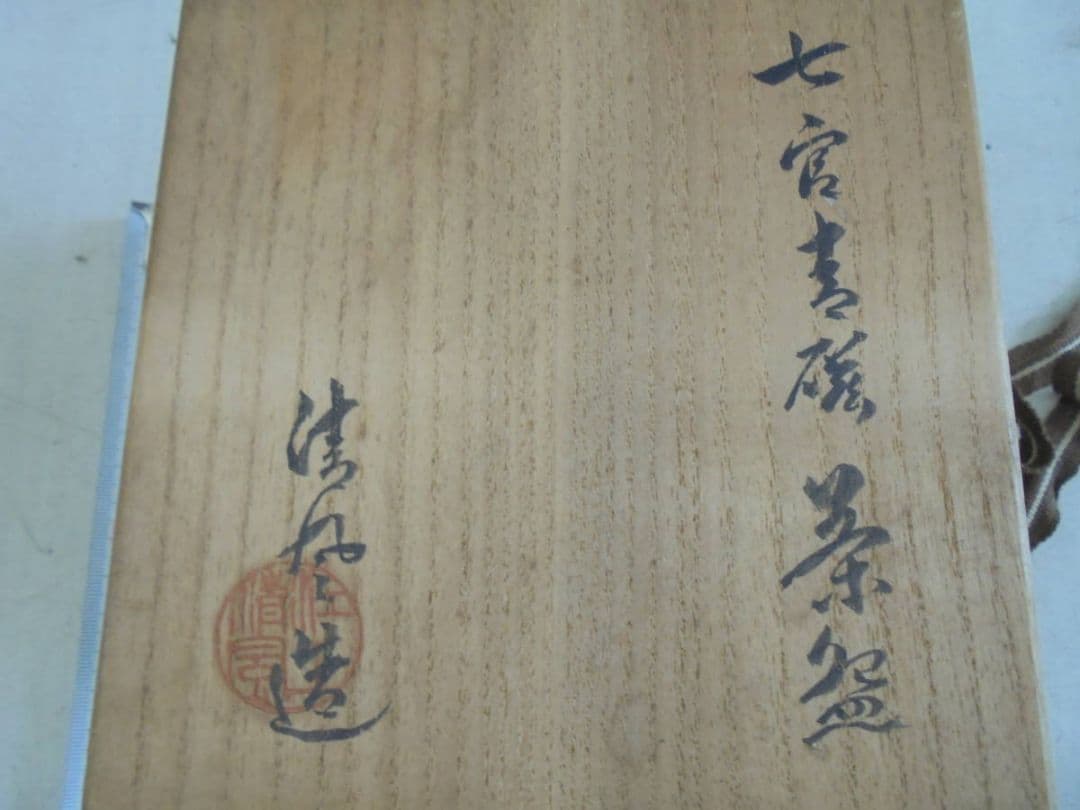 七官青磁 茶盌
清風造